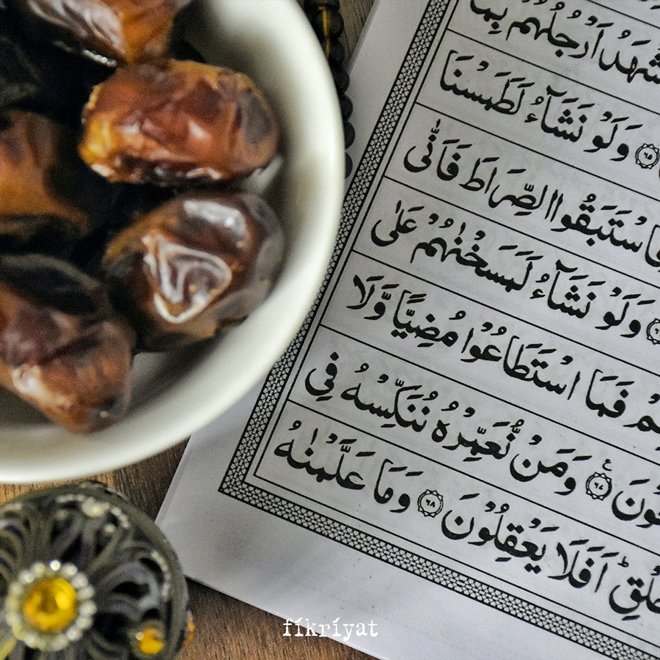 اَرْجُلُهُمْ بِمَا
۝٦٥ وَلَوْ نَشَآءُ لَطَمَسْنَا
فَاسْتَبَقُوا الصِّرَاطَ فَاَنّٰى
وَلَوْ نَشَآءُ لَمَسَخْنٰهُمْ عَلٰى
فَمَا اسْتَطَاعُوْا مُضِيًّا وَّلَا
۝٦٧ وَمَنْ نُّعَمِّرْهُ نُنَكِّسْهُ فِى
اَفَلَا يَعْقِلُوْنَ ۝٦٨ وَمَا عَلَّمْنٰهُ
fikriyat